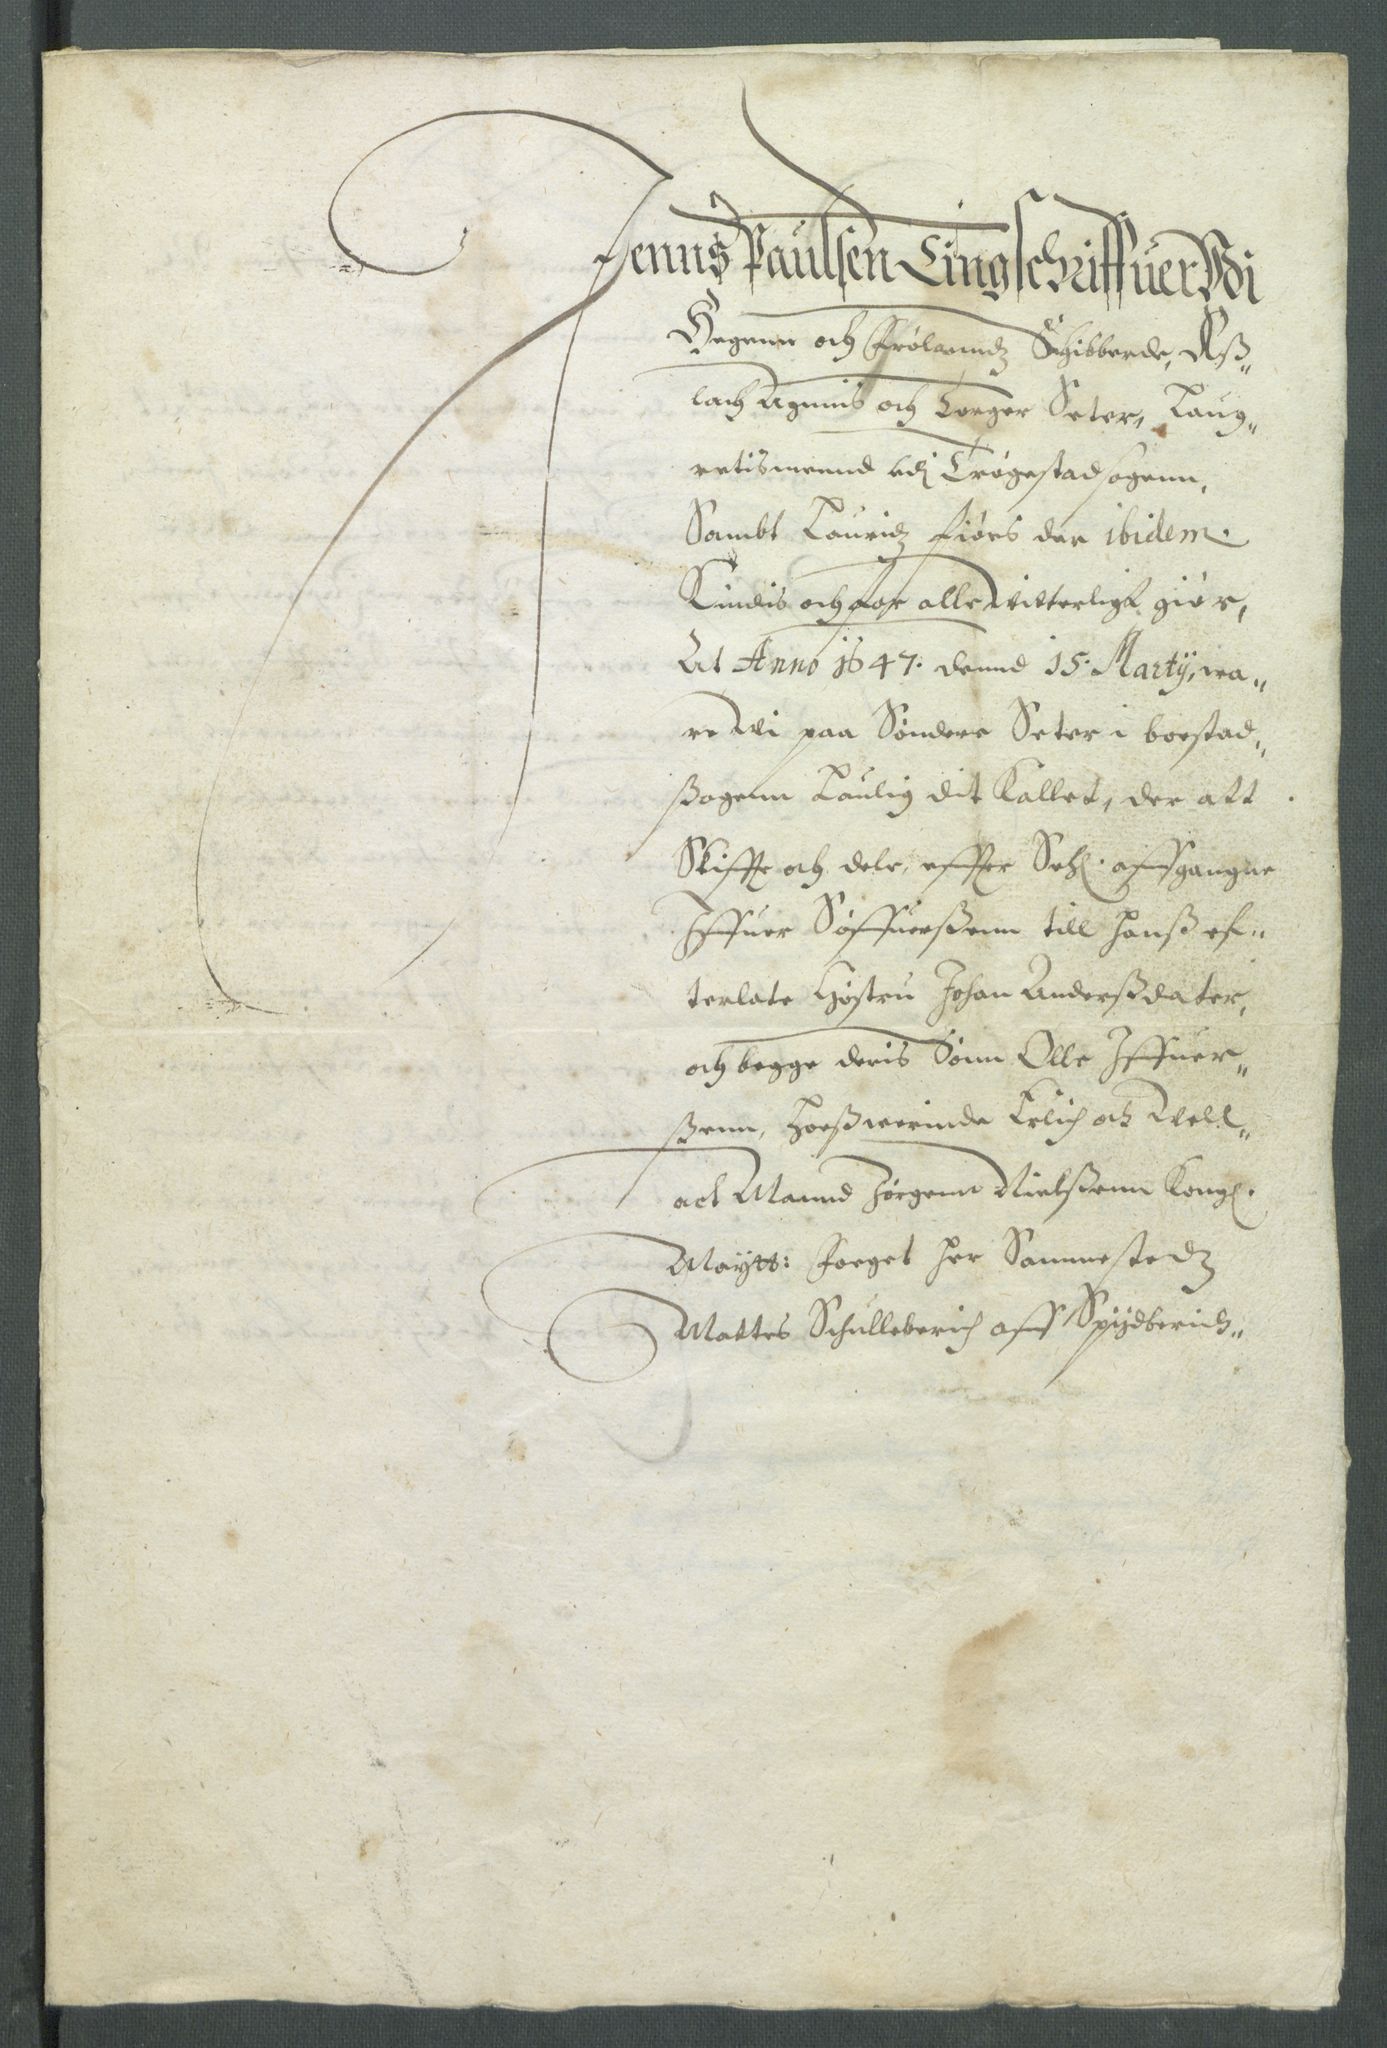 Jenns Paulsen Tingschriffuer Vdi
Heggenn och Frølanndz Schibberde, Aß„
lach Agnnis och Torger Seter, Laug„
rettismennd vdj Trøgestad sogenn,
Sambt Lauridz Fiøs der ibidem.
Kiendis och for alle Witterligt giør,
At Anno 1647: dennd 15. Martij, wa„
re Wi paa Søndere Seter i boestad„
ßogenn Laulig dit Kallet, der att
Skiffte och dele, effter Sehl. affgangne
Iffuer Søffuerßenn till hanß ef„
terlate Høstru Johan Anderßdater,
och begge deris Sønn Olle Iffuer„
ßenn, Hoeß werinde Erlich och Vell„
act Mannd Jørgenn Nielßenn Kongl.
Maytts: Foeget her Sammestedz
Mattes Schulleberich aff Spydberich„